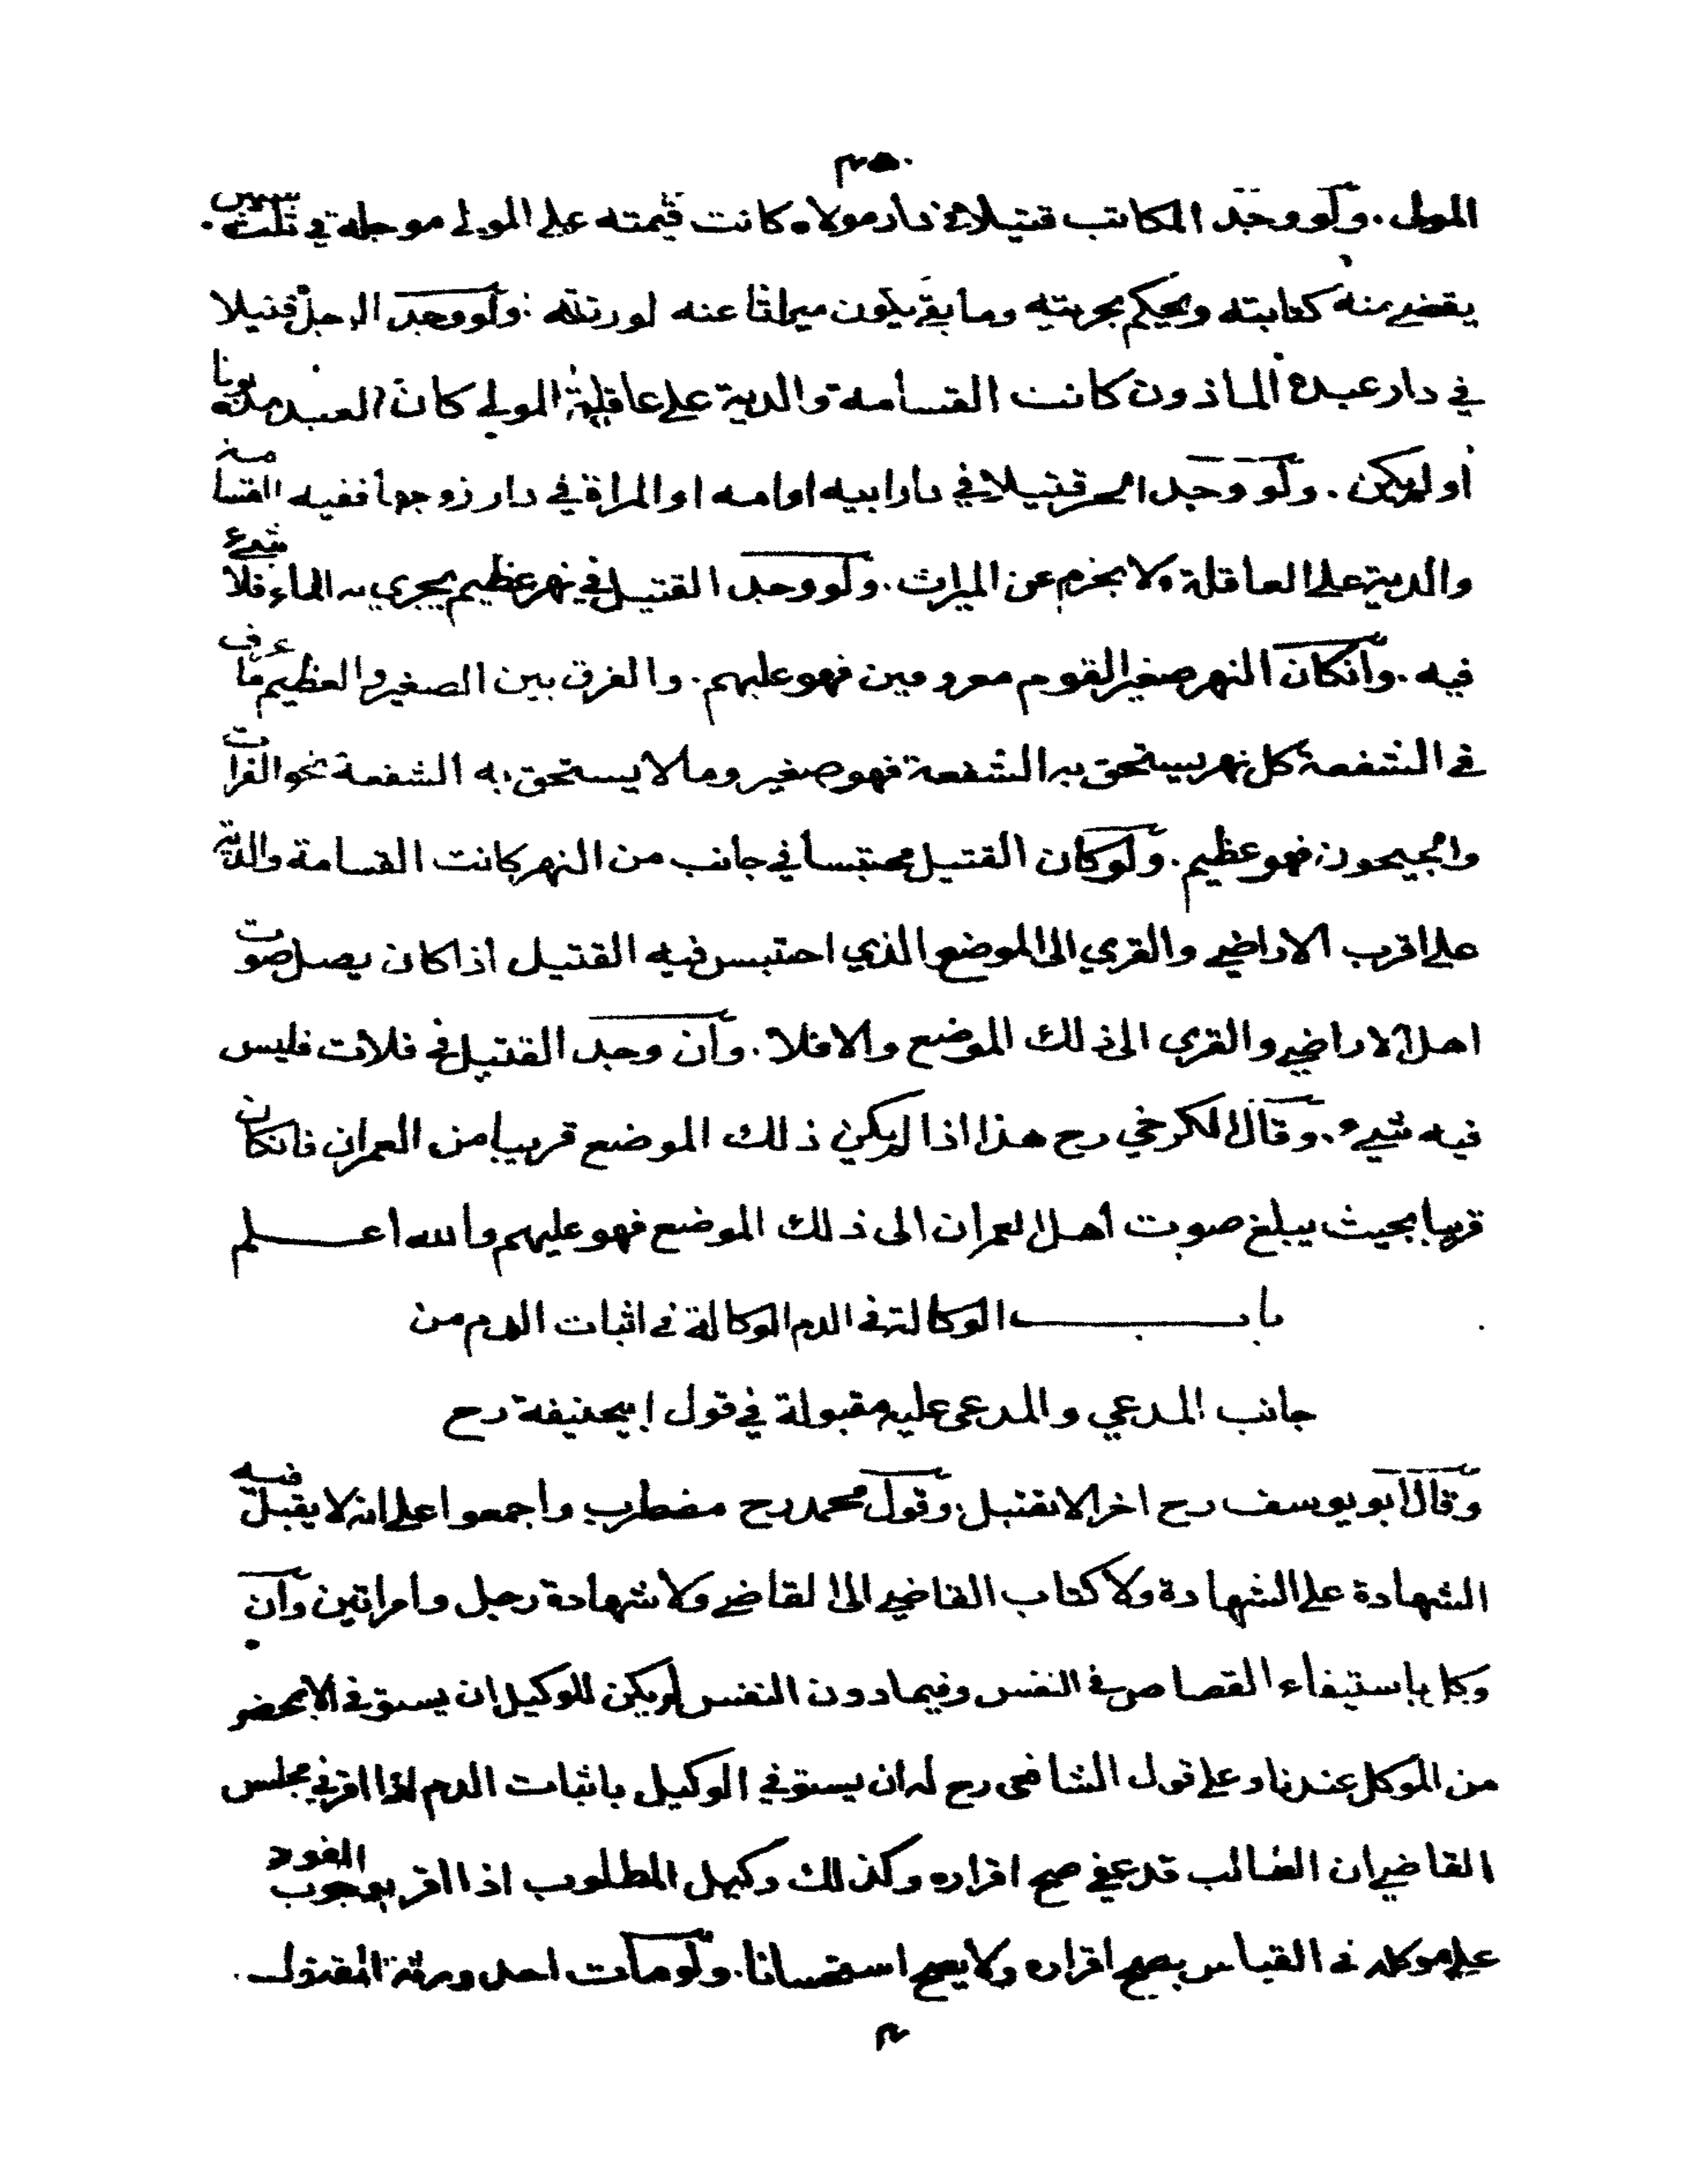 ٣٥٠
المولى. ولو وجد المكاتب قتيلا في دار مولاه كانت قيمته على المولى موجلة في ثلث سنين.
يقضي منه كتابته ويحكم بحريته وما بقي يكون ميراثا عنه لورثته. ولو وجد الرجل قتيلا
في دار عبده الماذون كانت القسامة والدية على عاقلة المولى كان العبد مديونا
او لم يكن. ولو وجد الحر قتيلا في دار ابيه او امه او المراة في دار زوجها ففيه القسامة
والدية على العاقلة ولا يحرم عن الميراث. ولو وجد القتيل في نهر عظيم يجري به الماء فلا شيء
فيه. وان كان النهر صغيرا لقوم معروفين فهو عليهم. والفرق بين الصغير والعظيم ما عرف
في الشفعة كل نهر يستحق به الشفعة فهو صغير وما لا يستحق به الشفعة نحو الفرات
والجيحون فهو عظيم. ولو كان القتيل محتبسا في جانب من النهر كانت القسامة والدية
على اقرب الاراضي والقرى الى الموضع الذي احتبس فيه القتيل اذا كان يصل صوت
اهل الاراضي والقرى الى ذلك الموضع والا فلا. وان وجد القتيل في فلات فليس
فيه شيء. وقال الكرخي رح هذا اذا لم يكن ذلك الموضع قريبا من العمران فان كان
قريبا بحيث يبلغ صوت أهل العمران الى ذلك الموضع فهو عليهم والله اعلم
باب الوكالة في الدم الوكالة في اثبات الدم من
جانب المدعي والمدعى عليه مقبولة في قول ابيحنيفة رح
وقال ابو يوسف رح اخرا لا تقبل وقول محمد رح مضطرب واجمعوا على انه لا يقبل فيه
الشهادة على الشهادة ولا كتاب القاضي الى القاضي ولا شهادة رجل وامراتين وان
وكل باستيفاء القصاص في النفس وفيما دون النفس لم يكن للوكيل ان يستوفي الا بمحضر
من الموكل عندنا وعلى قول الشافعي رح له ان يستوفي الوكيل باثبات الدم اذا اقر في مجلس
القاضي ان الطالب قد عفي صح اقراره وكذلك وكيل المطلوب اذا اقر بوجوب القود
على موكله في القياس يصح اقراره ولا يصح استحسانا. ولو مات احد ورثة المقتول.